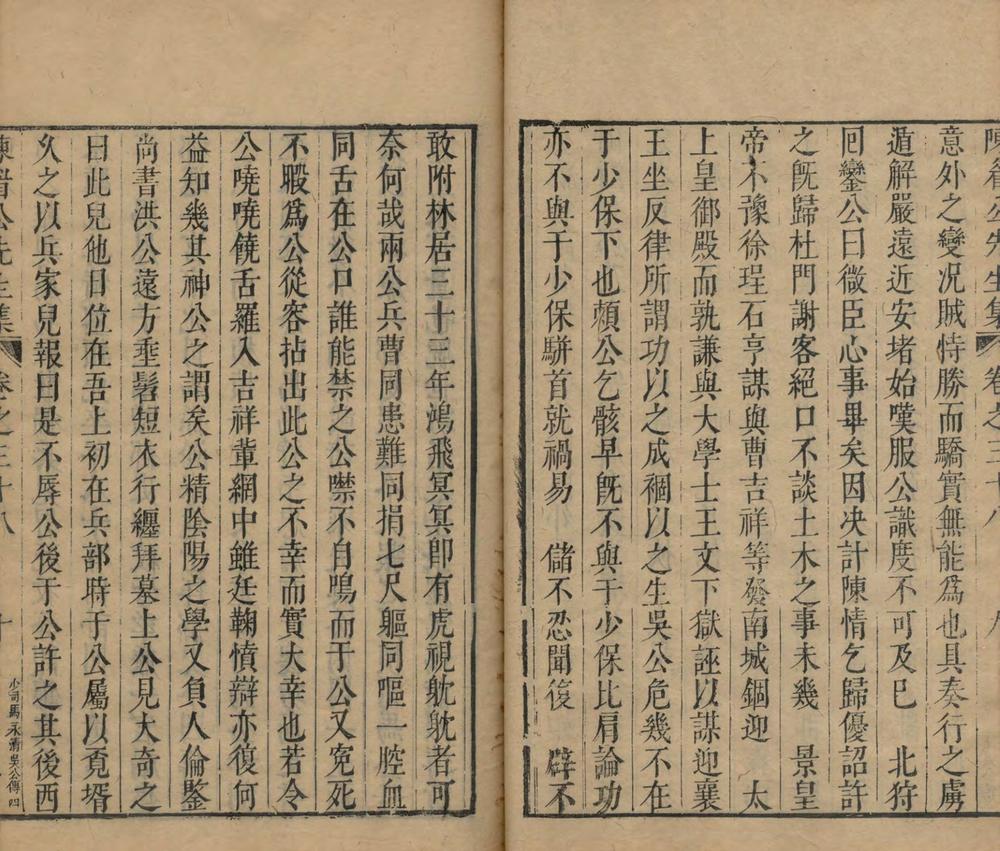 陳眉公先生集 卷之三十八 九
意外之變况賊恃勝而驕實無能爲也具奏行之虜
遁解嚴遠近安堵始嘆服公識度不可及巳 北狩
囘鑾公曰微臣心事畢矣因决計陳情乞歸優詔許
之旣歸杜門謝客絕口不談土木之事未幾 景皇
帝不豫徐珵石亨謀與曹吉祥等發南城錮迎 太
上皇御殿而執謙與大學士王文下獄誣以謀迎襄
王坐反律所謂功以之成裍以之生吳公危幾不在
于少保下也賴公乞骸早旣不與于少保比肩論功
亦不與于少保駢首就禍易 儲不忍聞復 辟不
敢附林居三十三年鴻飛冥冥卽有虎視眈眈者可
奈何哉兩公兵曹同患難同捐七尺軀同嘔一腔血
同舌在公口誰能禁之公噤不自鳴而于公又寃死
不暇爲公從容拈出此公之不幸而實大幸也若令
公嘵嘵饒舌羅入吉祥輩網中雖廷鞠憤辯亦復何
益知幾其神公之謂矣公精陰陽之學又負人倫鑒
尚書洪公遠方垂髫短衣行纏拜墓上公見大奇之
曰此兒他日位在吾上初在兵部時于公屬以覓壻
久之以兵家兒報曰是不辱公後于公許之其後西
陳眉公先生集 卷之三十八 十
少司馬永清吳公傳 四